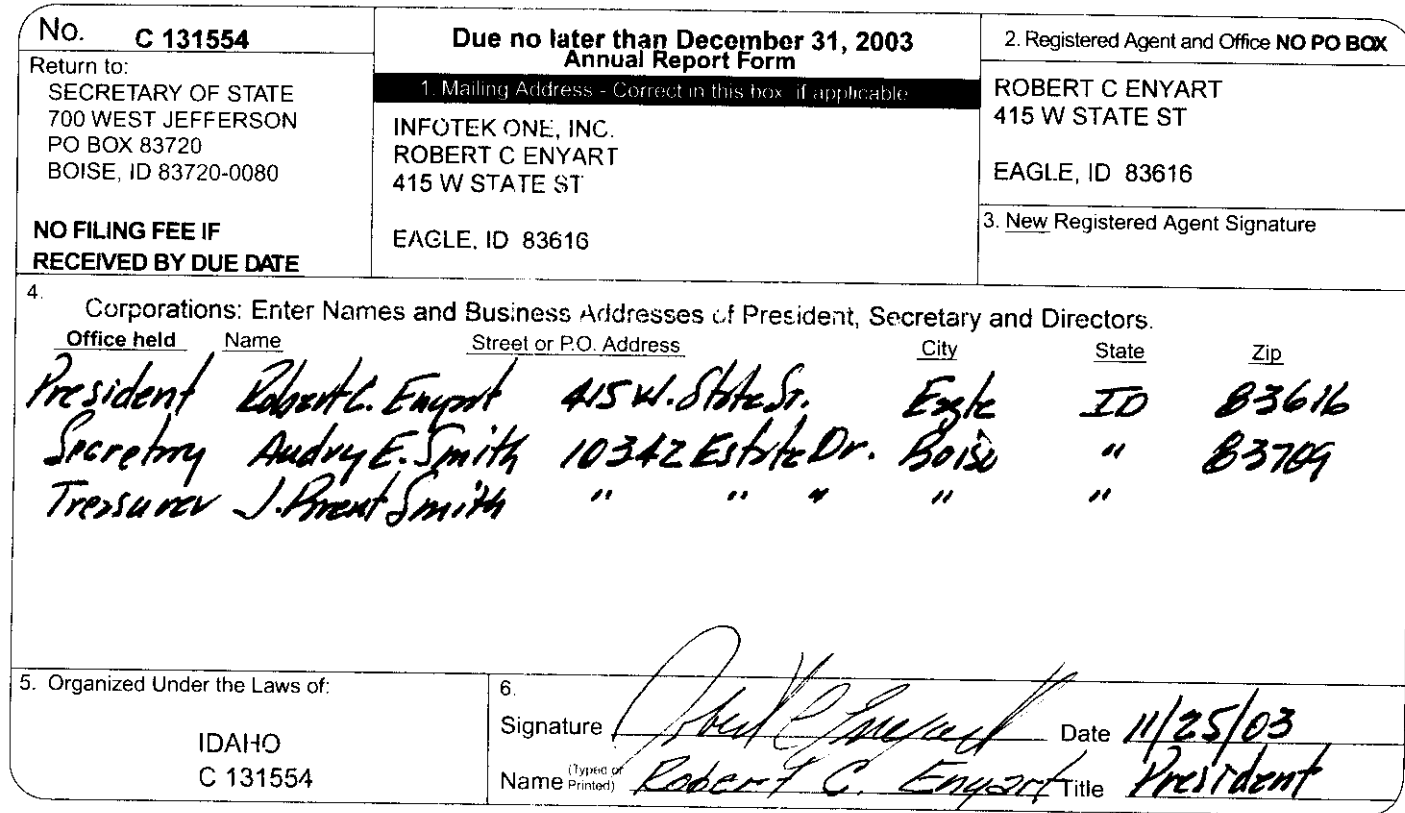 No. C 131554
Return to:
SECRETARY OF STATE
700 WEST JEFFERSON
PO BOX 83720
BOISE, ID 83720-0080
NO FILING FEE IF
RECEIVED BY DUE DATE
Due no later than December 31, 2003
Annual Report Form
1. Mailing Address - Correct in this box if applicable
INFOTEK ONE, INC.
ROBERT C ENYART
415 W STATE ST
EAGLE, ID 83616
2. Registered Agent and Office NO PO BOX
ROBERT C ENYART
415 W STATE ST
EAGLE, ID 83616
3. New Registered Agent Signature
4.
Corporations: Enter Names and Business Addresses of President, Secretary and Directors.
Office held Name Street or P.O. Address City State Zip
President Robert C. Enyart 415 W. State St. Eagle ID 83616
Secretary Audry E. Smith 10342 Estate Dr. Boise " 83709
Treasurer J. Brent Smith " " " " "
5. Organized Under the Laws of:
IDAHO
C 131554
6.
Signature Robert C Enyart Date 11/25/03
Name (Typed or Printed) Robert C. Enyart Title President